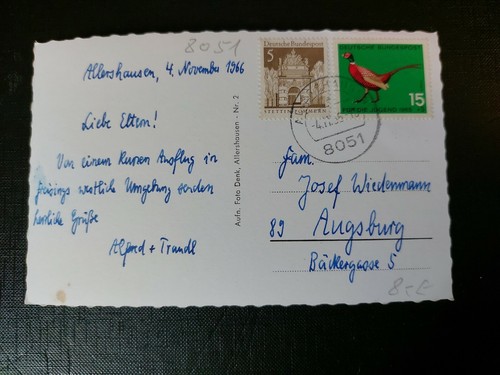 8051
Allershausen, 4. November 1966
Liebe Eltern!
Von einem kurzen Ausflug in
Freisings westliche Umgebung senden
herzliche Grüße
Alfred + Traudl
Aufn. Foto Denk, Allershausen - Nr. 2
Deutsche Bundespost
5
STETTIN
DEUTSCHE BUNDESPOST
FÜR DIE JUGEND
15
8051
Fam.
Josef Wiedenmann
89 Augsburg
Bäckergasse 5